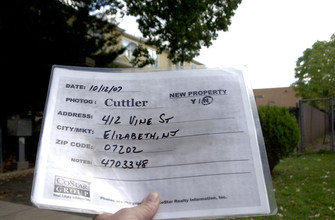 DATE: 10/12/07
NEW PROPERTY
PHOTOG: Cuttler
Y / N
ADDRESS: 412 VINE ST
CITY/MKT: ELIZABETH, NJ
ZIP CODE: 07202
NOTES: 4703348
COSTAR
GROUP
Realty Information, Inc.